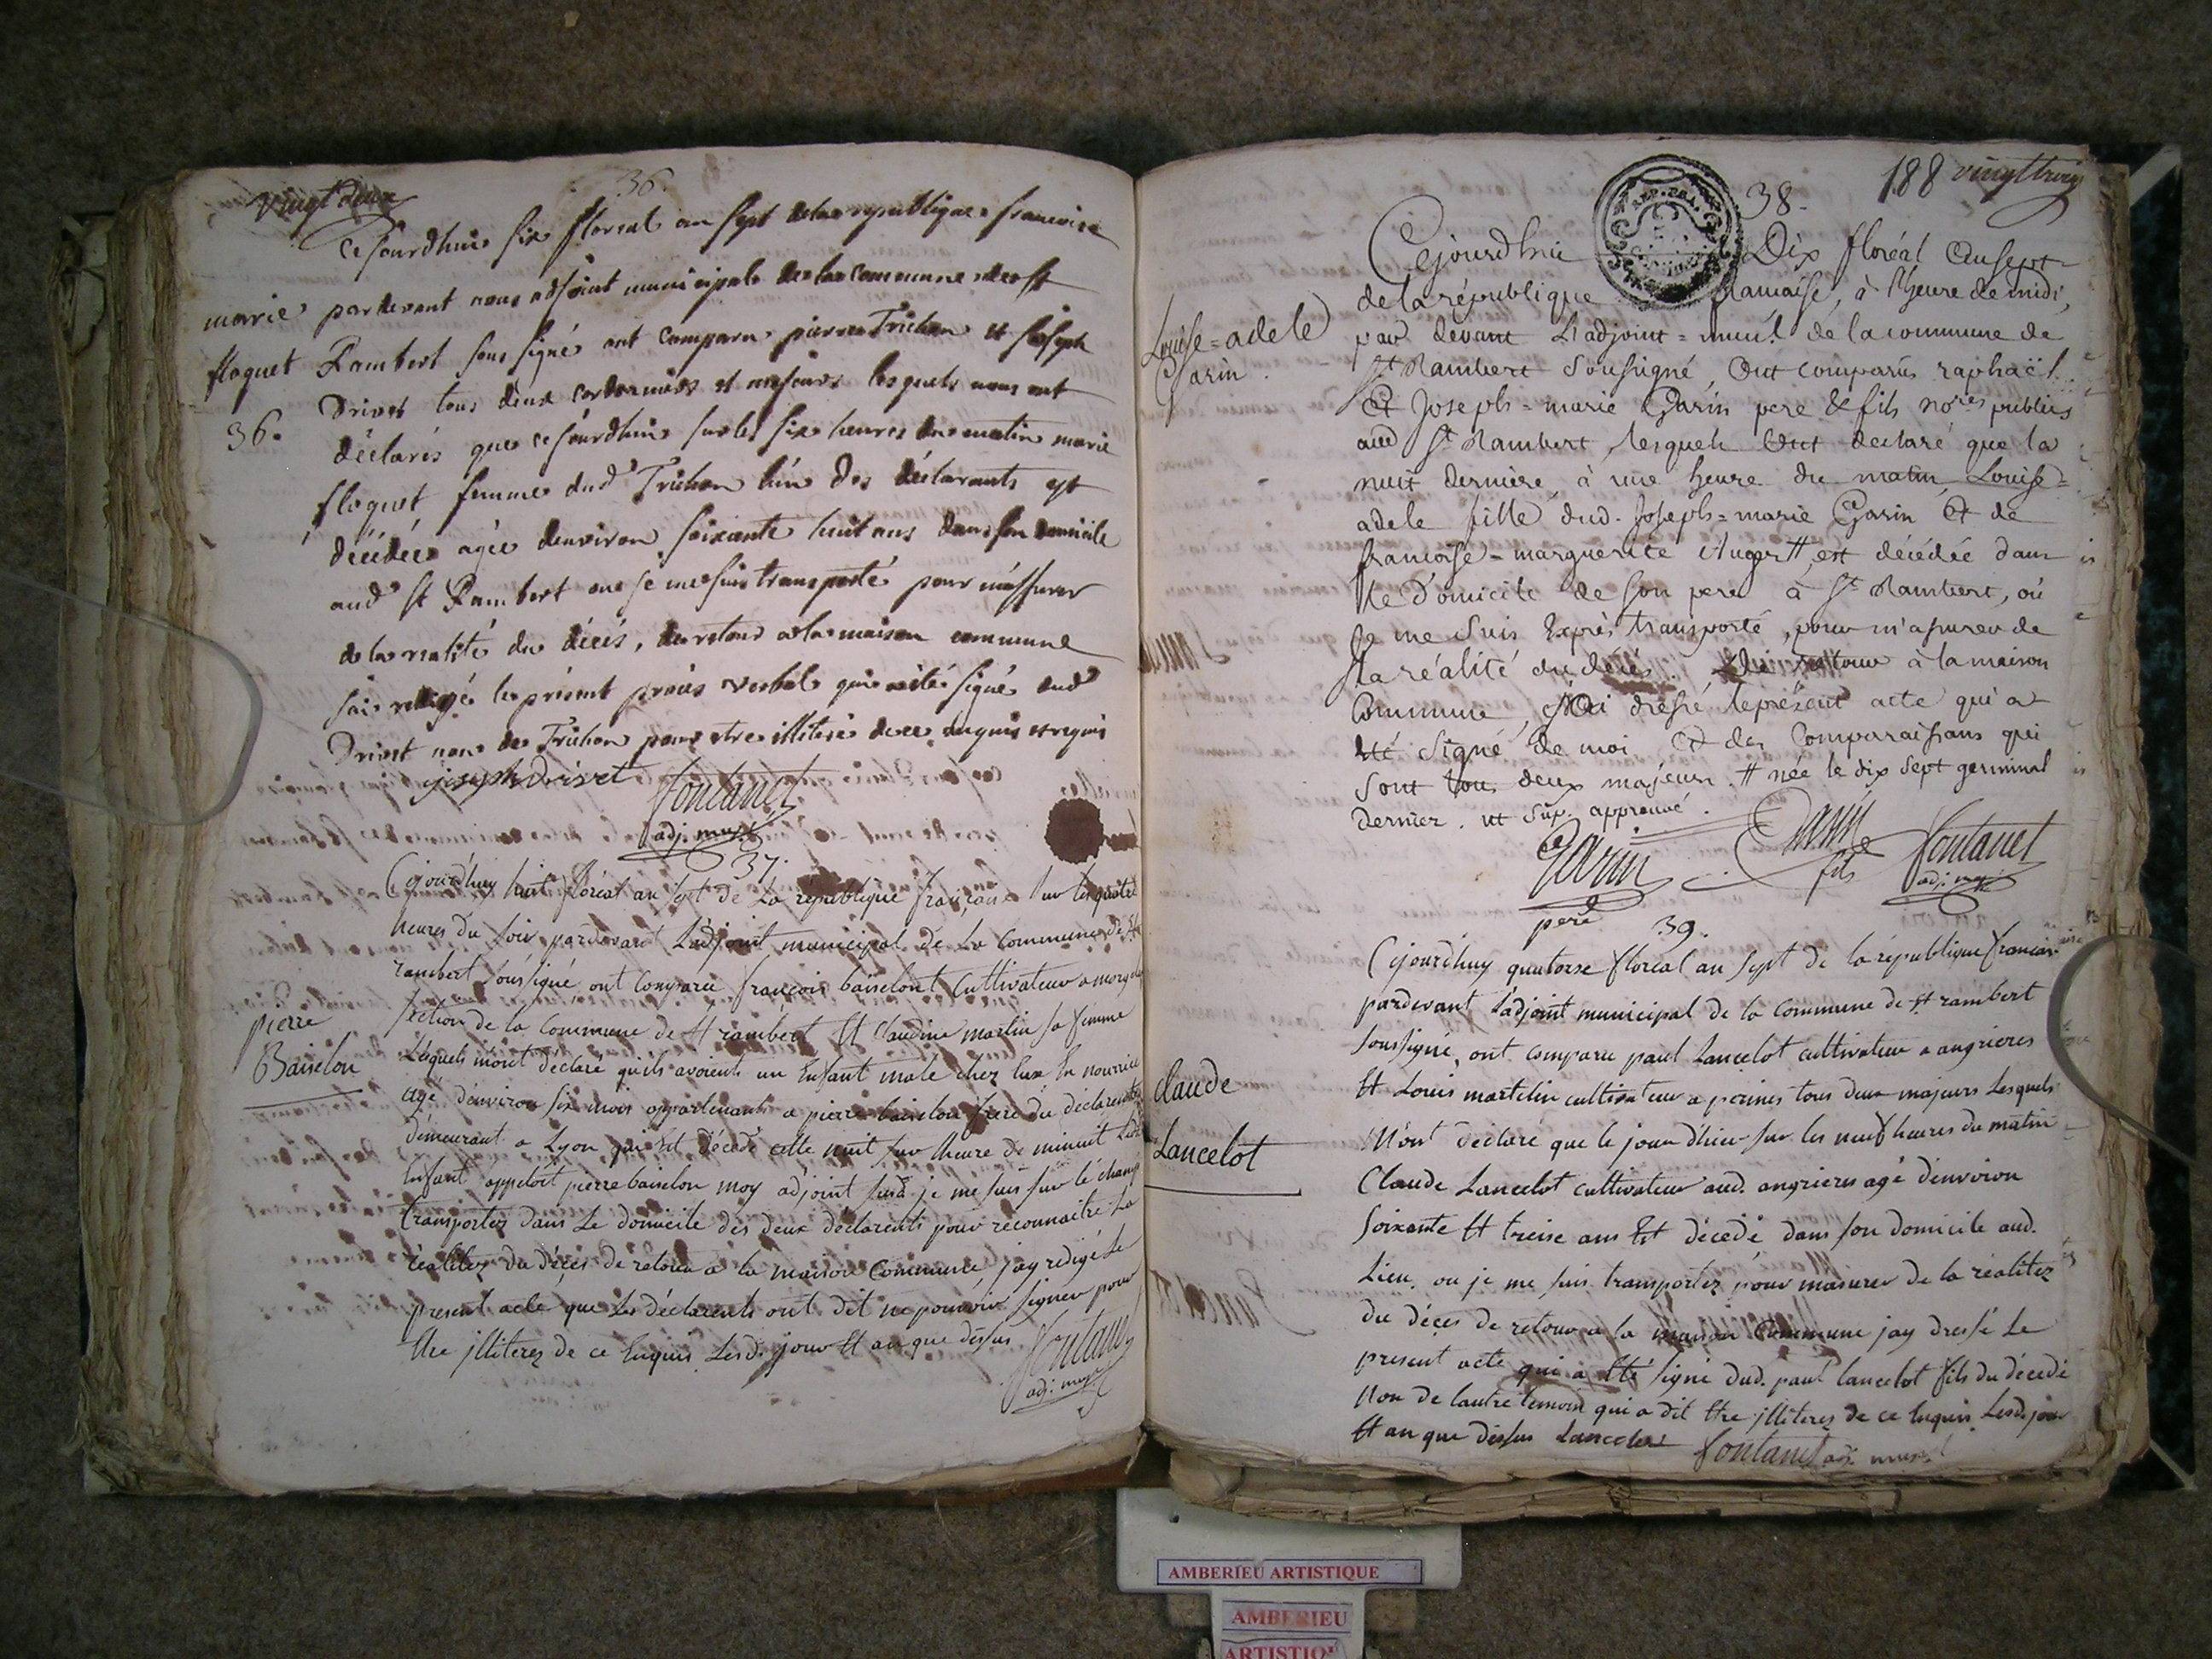 vingt deux
36.
Cejourdhuis six floreal an sept delas republique francoise
marie pardevant nous adjoint municipale delas commune de st
floquet Rambert sous signé ont comparu pierre Trichon et joseph
36. Drivet tous deux cordonniers et majeurs lesquels nous ont
déclarés que cejourdhuis sur les six heures du matin marie
floquet femme dud Trichon l'un des déclarants est
décédée agée denviron soixante huit ans dans son domicile
aud St Rambert ou je me suis transporté pour m'assurer
delas realité du décés, de retour a la maison commune
jais redigé les présent procés verbal qui a été signé dud
Drivet non de Trichon pour etre illiteré de ce enquis et requis
joseph Drivet fontanet
adj. mupl
37.
Cejourd'huy huit floréal an sept de la république françoise sur les quatre
heures du soir pardevant L'adjoint municipal de la commune de St
rambert soussigné ont comparu françois baiselont cultivateur a
section de la commune de St rambert Et Claudine martin sa femme
pierre
Baiselon
Lesquels m'ont déclaré qu'ils avoient un Enfant male chez Eux En nourrice
agé d'environ six mois appartenant a pierre baiselon frere du declarent
démeurant a Lyon qui Est décedé cette nuit sur lheure de minuit Led.
Enfant appeloit pierre baiselon moy adjoint susd. je me suis sur le champ
transportez dans Le domicile des deux déclarents pour réconnaitre La
réalitez du déçes de retour a la maison Commune, jay redigé Le
present acte que Les déclarents ont dit ne pouvoir signer pour
Etre jlliterez de ce Enquis Lesd. jour Et an que dessus fontanet
adj. mupl
188 vingt trois
38.
Cejourdhui Dix floréal an sept
de la république francaise, à l'heure de midi,
Louise=adele
Garin.
par devant L'adjoint=mun.l de la commune de
St Rambert soussigné, ont comparus raphaël
Et Joseph=marie Garin pere & fils no.res publics
aud St Rambert, lesquels ont declaré que la
nuit derniere, à une heure du matin, Louise=
adele fille dud. Joseph=marie Garin Et de
francoise=marguerite Auger # est décédée dans
le Domicile de son pere à St Rambert, où
Je me suis Exprès transporté, pour m'assurer de
la réalité du décès. De retour à la maison
Commune, j'ai dressé le présent acte qui a
été signé de moi Et des Comparaissans qui
sont tous deux majeurs. # née le dix sept germinal
dernier. ut sup. approuvé.
Garin Garin fontanet
pere fils adj. mupl
39.
Cejourd'huy quatorse floréal an sept de la république francaise
pardevant L'adjoint municipal de la commune de St rambert
soussigné, ont comparu paul Lancelot cultivateur a angrieres
Et Louis martelin cultivateur a perines tous deux majeurs Lesquels
claude
Lancelot
M'ont déclaré que le jour d'hier sur les neuf heures du matin
Claude Lancelot cultivateur aud. angrieres agé d'environ
soixante Et treise ans Est décedé dans son domicile aud.
Lieu, ou je me suis transportez pour masurer de la réalitez
du déçes de retour a la maison Commune jay dressé Le
present acte qui a Eté signé dud. paul lancelot fils du décedé
Non de lautre temoin qui a dit Etre jlliterez de ce Enquis Lesd. jour
Et an que dessus Lancelot fontanet adj. mupl
AMBERIEU ARTISTIQUE
AMBERIEU
ARTISTIQU